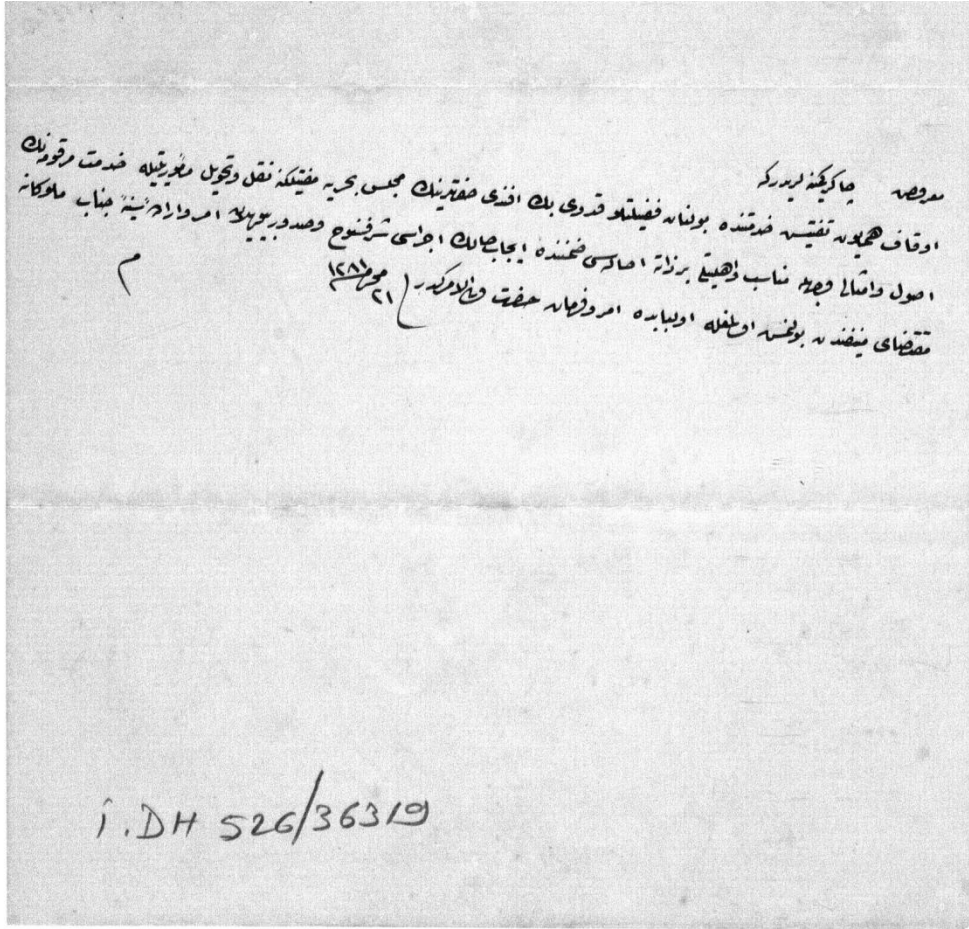 معروض چاكر كمينه لريدر كه
اوقاف همايون تفتيش خدمتنده بولنان فضيلتلو قدری بك افندی حضرتلرينك مجلس بحريه مفتيلكنه نقل وتحويل مأموريتيله خدمت مرقومه نك
اصول وامثالی وجهله مناسب واهليتلو بر ذاته احاله سی ضمننده ايجاب حالك اجراسی شرفسنوح وصدور بيوريلان امر واراده سنيه جناب ملوكانه
مقتضای منيفندن بولنمش اولمغله اولبابده امر وفرمان حضرت ولی الامركدر
٢١ محرم ١٢٨١
م
İ.DH 526/36319